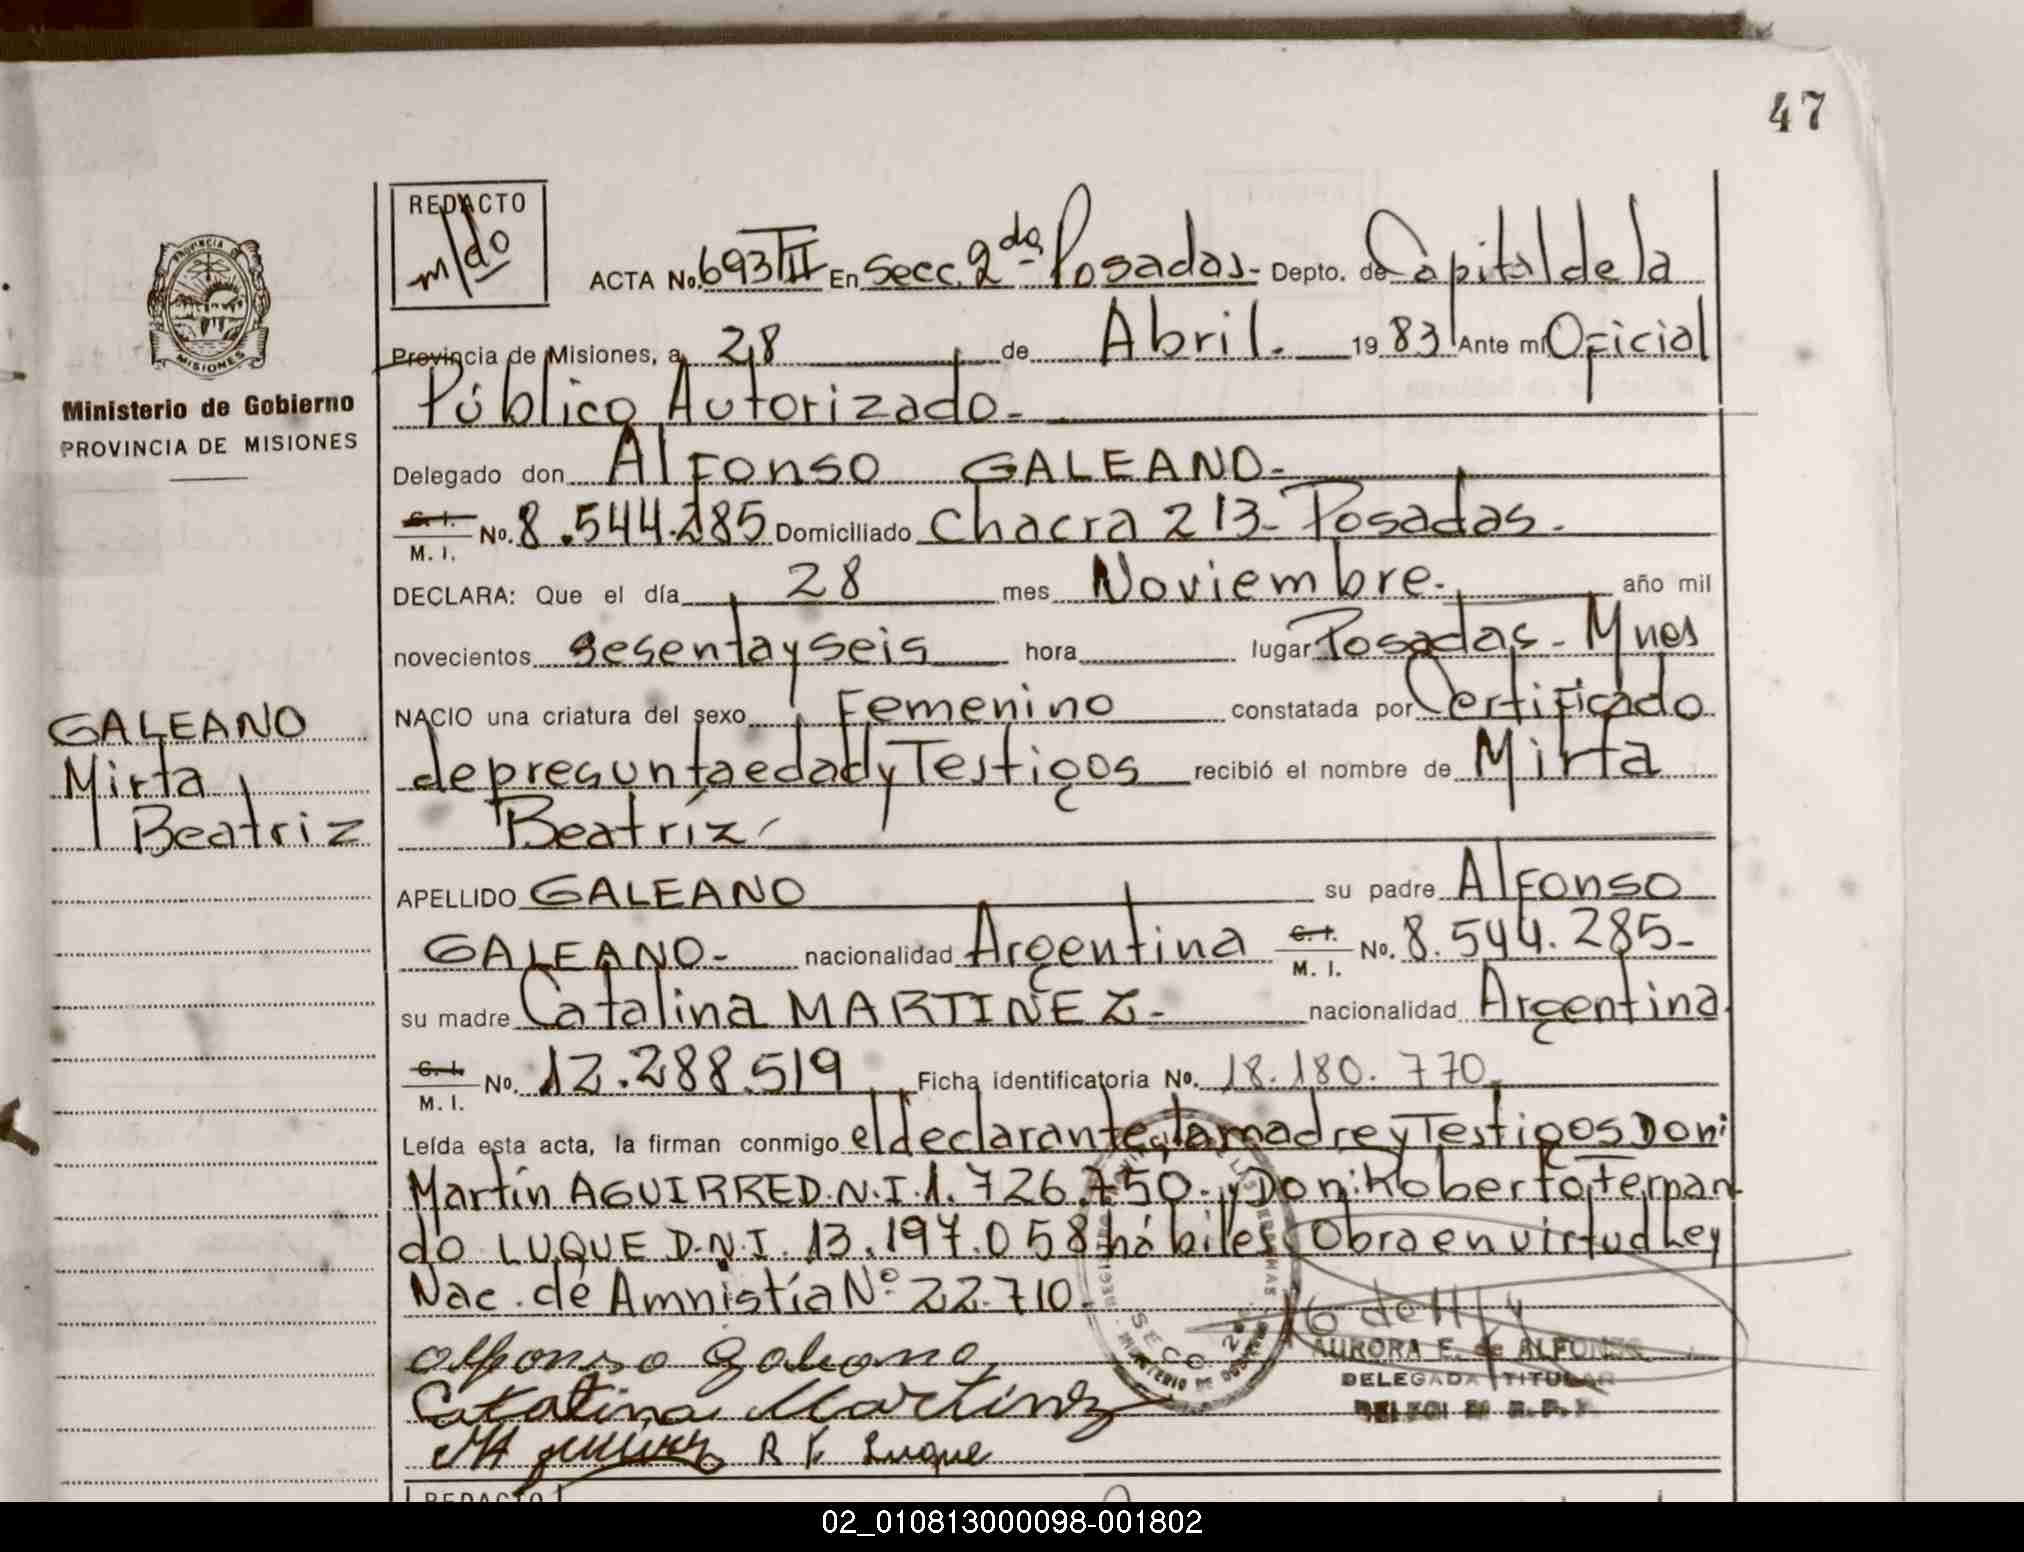 47
REDACTO
m/do
ACTA No. 693 TII En Secc. 2da Posadas- Depto. de Capital de la
PROVINCIA DE
MISIONES
Provincia de Misiones, a 28 de Abril. 1983 Ante mi Oficial
Ministerio de Gobierno
PROVINCIA DE MISIONES
Público Autorizado-
Delegado don Alfonso GALEANO-
C. I. M. I. No. 8.544.285 Domiciliado Chacra 213- Posadas-
DECLARA: Que el día 28 mes Noviembre- año mil
novecientos sesenta y seis hora lugar Posadas- Mnes
GALEANO
Mirta
Beatriz
NACIO una criatura del sexo Femenino constatada por Certificado
de presunta edad y Testigos recibió el nombre de Mirta
Beatríz
APELLIDO GALEANO su padre Alfonso
GALEANO- nacionalidad Argentina C. I. M. I. No. 8.544.285-
su madre Catalina MARTINEZ- nacionalidad Argentina
C. I. M. I. No. 12.288.519 Ficha identificatoria No. 18.180.770
Leída esta acta, la firman conmigo el declarante, la madre y Testigos Don:
Martín AGUIRRE D.N.I. 1.726.750- y Don: Roberto Fernan
do LUQUE D.N.I. 13.197.058 hábiles Obra en virtud Ley
Nac. de Amnistía Nº 22.710.
Alfonso Galeano
Catalina Martinez
R F Luque
SECC. 2ª
MINISTERIO DE GOBIERNO
AURORA E. de ALFONZO
DELEGADA TITULAR
REDACTO
02_010813000098-001802